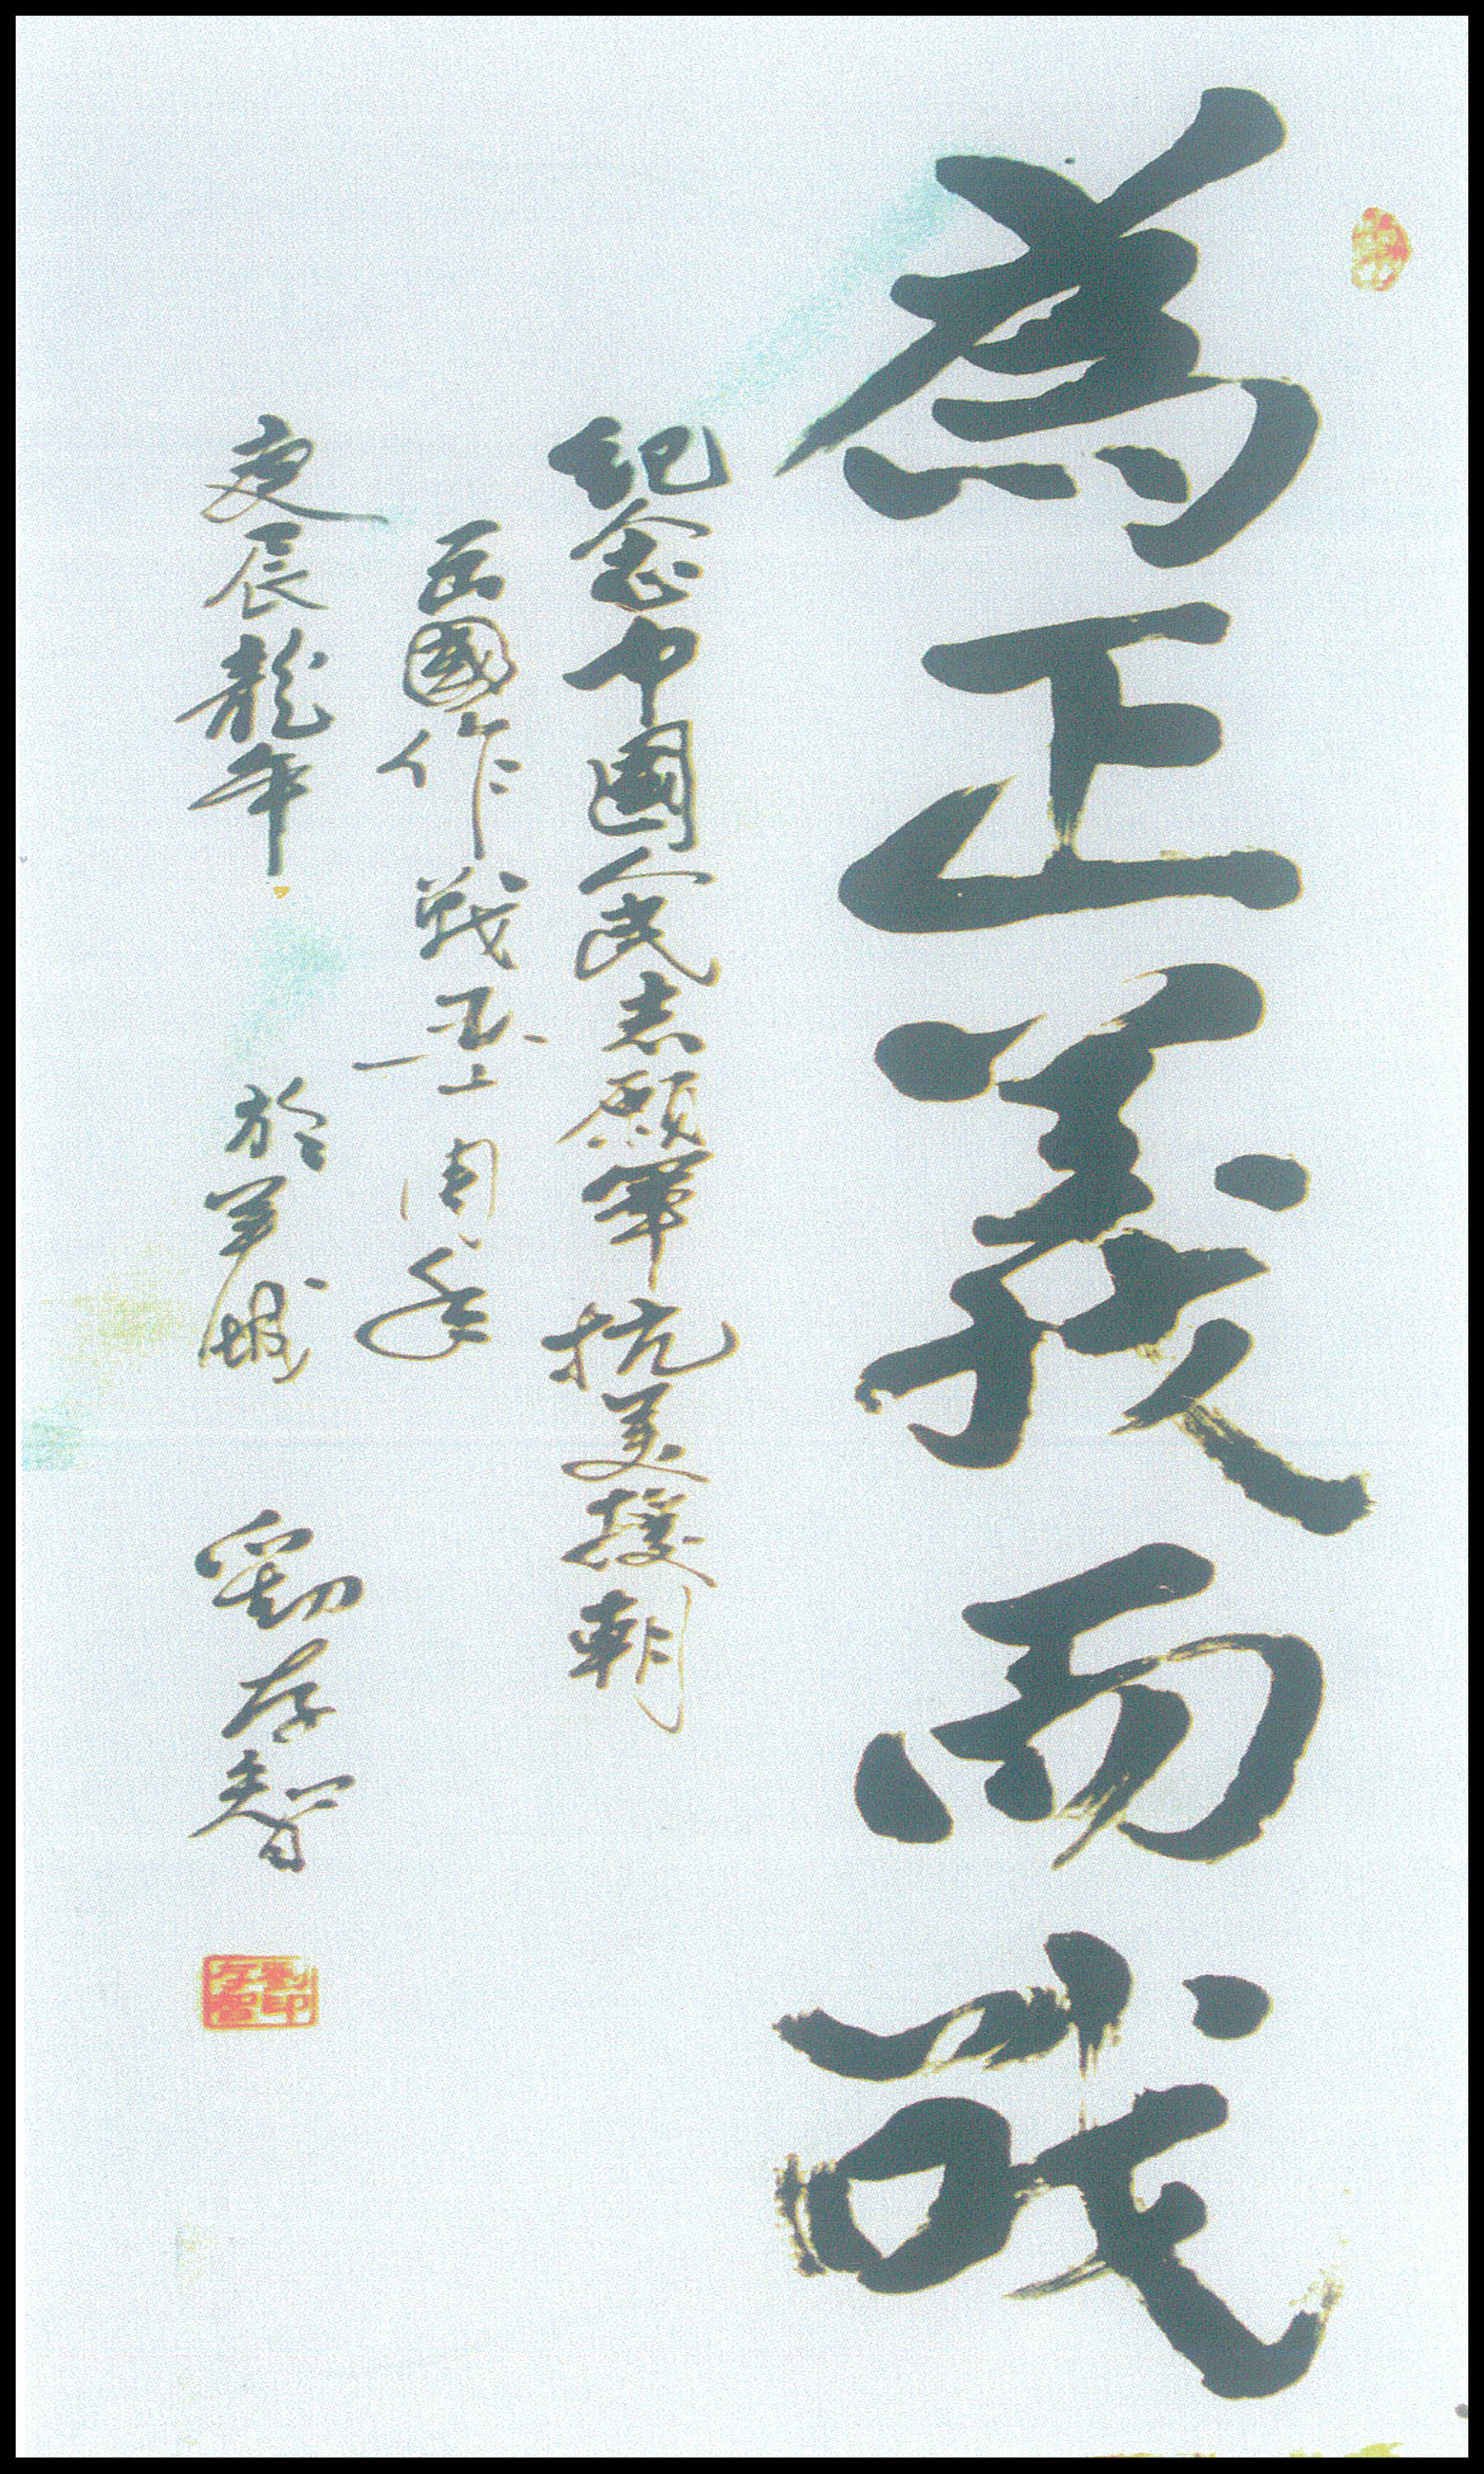 為正義而戰
紀念中國人民志願軍抗美援朝
出國作戰五十周年
庚辰龍年 於羊城 劉存智
劉印存智